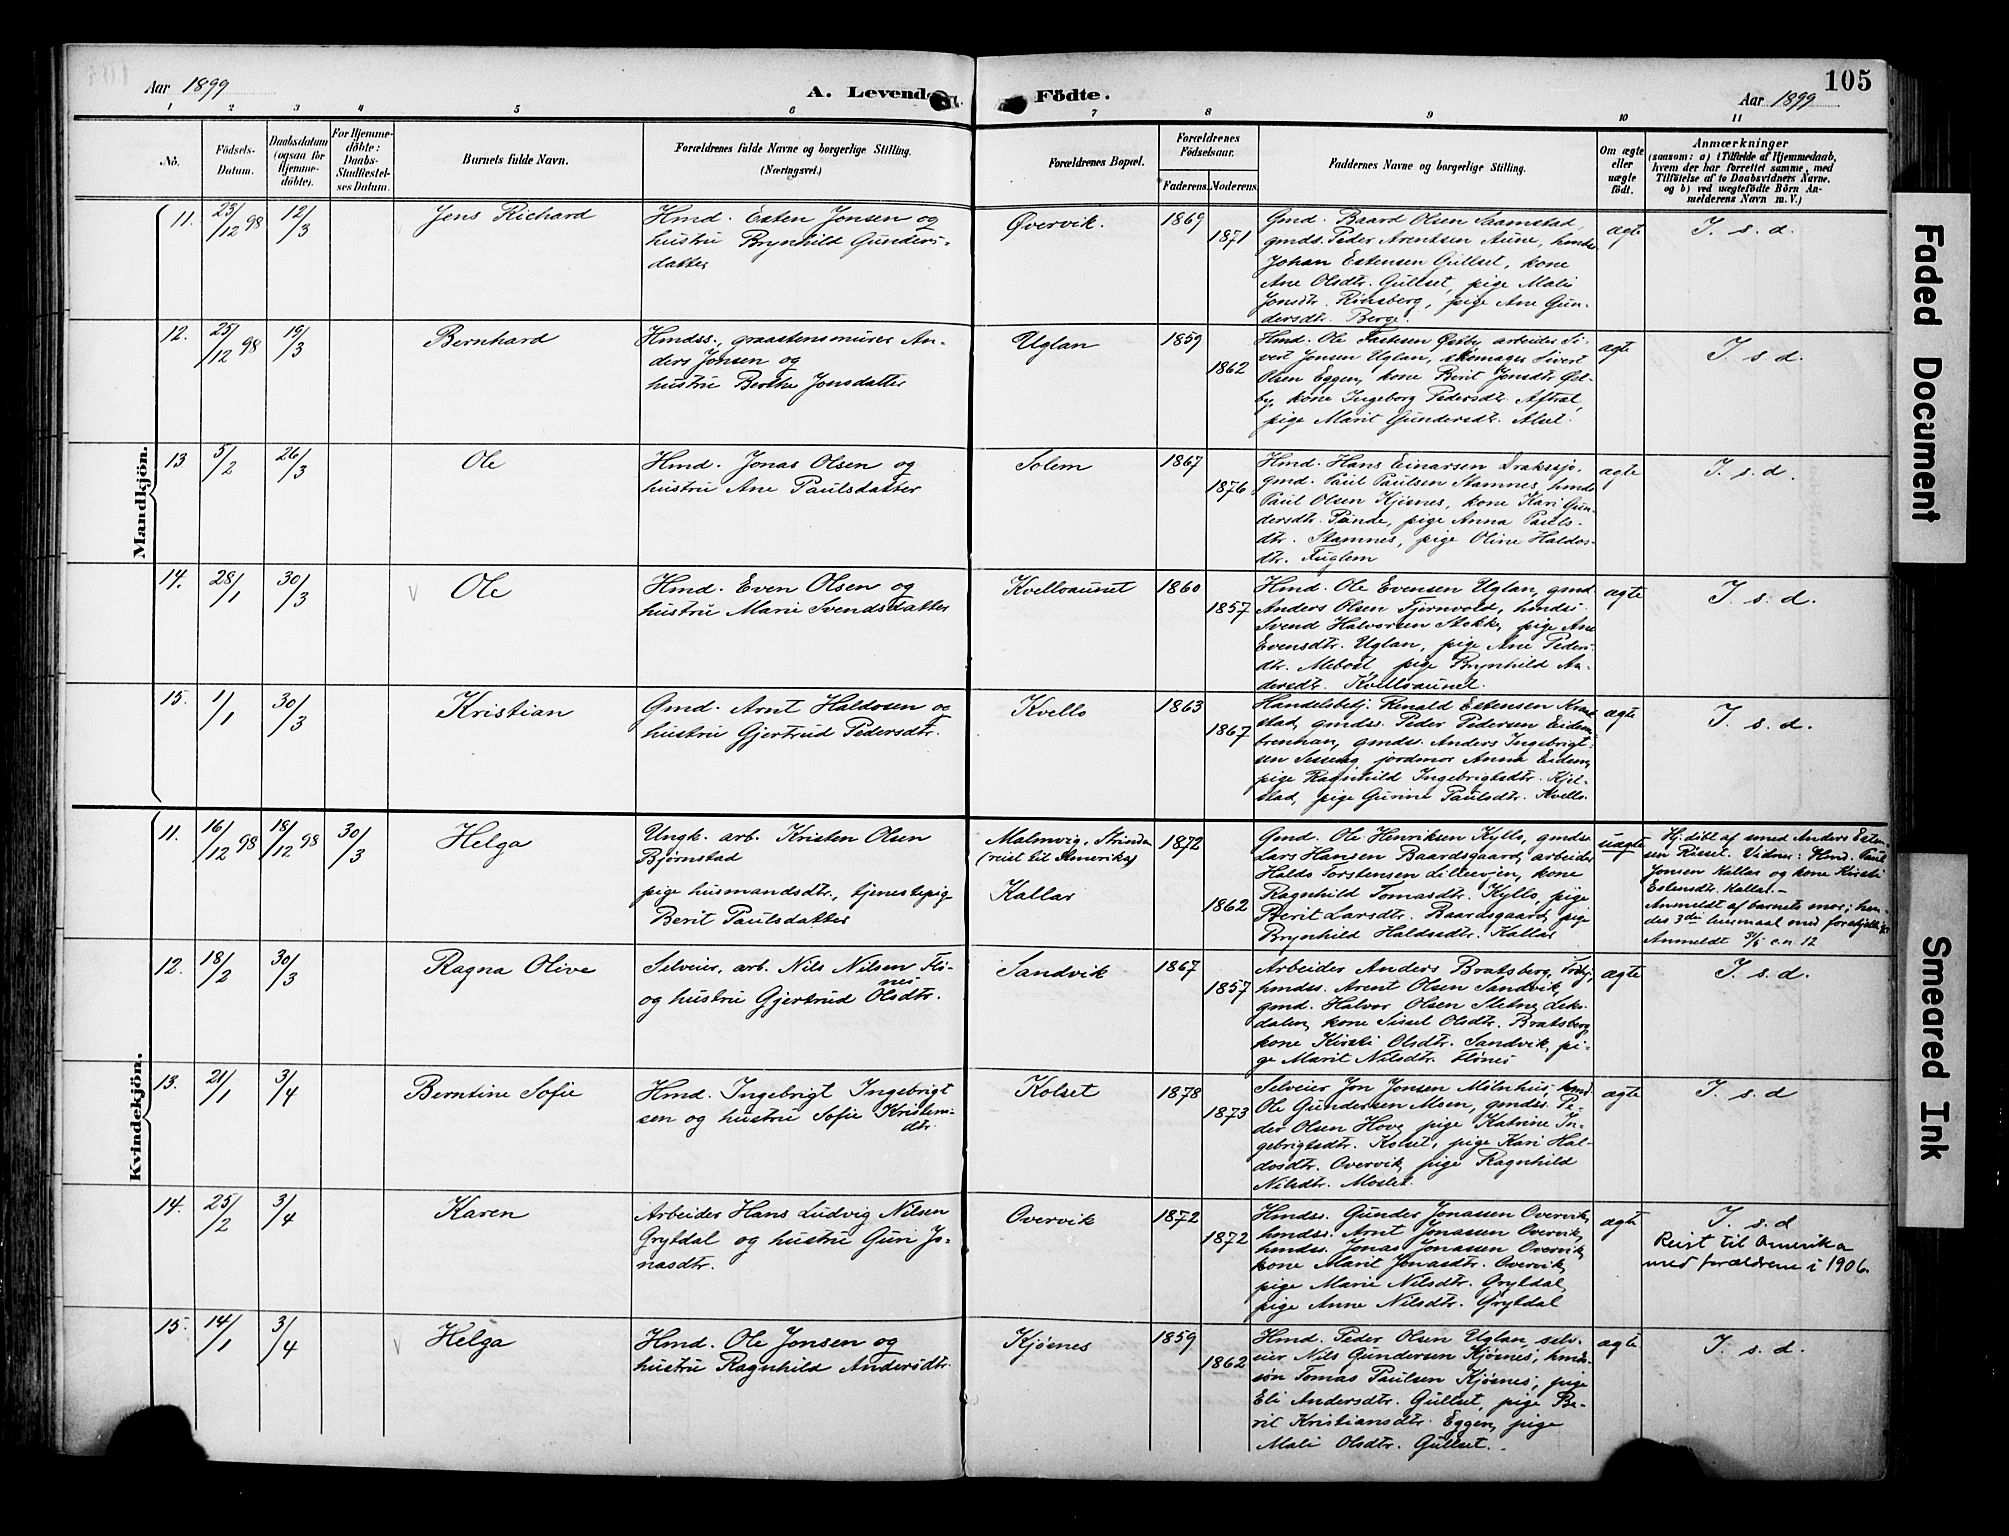 105
Aar 1899
A. Levende
Födte.
Aar 1899
1 2 3 4 5 6 7 8 9 10 11
No.
Födsels-Datum.
Daabsdatum (ogsaa for Hjemme-döbte).
For Hjemme-döbte: Daabs-Stadfæstel-ses Datum.
Barnets fulde Navn.
Forældrenes fulde Navne og borgerlige Stilling. (Næringsvei.)
Forældrenes Bopæl.
Forældrenes Födselsaar.
Faderens. Moderens.
Faddernes Navne og borgerlige Stilling.
Om ægte eller uægte födt.
Anmærkninger
(saasom: a) i Tilfælde af Hjemmedaab,
hvem der har forrettet samme, med
Tilföielse af to Daabsvidners Navne,
og b) ved uægtefödte Börn An-
melderens Navn m. V.)
Mandkjön.
11. 23/12 98 12/3 Jens Richard
Hmd. Esten Jonsen og
hustru Brynhild Gunders-
datter
Øvervik. 1869 1871
Gmd. Baard Olsen Saamstad,
gmds. Peder Arentsen Aune, hmds.
Johan Estensen Gullset, kone
Ane Olsdtr. Gullset, pige Mali
Jonsdtr. Rønsberg, pige Ane Gun-
dersdtr. Berge.
ægte I. s. d.
12. 25/12 98 19/3 Bernhard
Hmdss., graastensmurer An-
ders Jonsen og
hustru Berthe Jonsdatter
Uglan 1859 1862
Hmd. Ole Østby, arbeider Si-
vert Jonsen Uglan, skomager Sivert
Olsen Eggen, kone Berit Jonsdtr. Øst-
by, kone Ingeborg Pedersdtr. Aftral,
pige Marit Gundersdtr. Alset.
ægte I. s. d.
13 5/2 26/3 Ole
Hmd. Jonas Olsen og
hustru Ane Paulsdatter
Solem 1867 1876
Hmd. Hans Einarsen Drakssjø,
gmd. Paul Paulsen Stamnes, hmds.
Paul Olsen Kjøsnes, kone Kari Gun-
dersdtr. Rønde, pige Anna Pauls-
dtr. Stamnes, pige Oline Haldos-
dtr. Fuglem
ægte I. s. d.
14. 28/1 30/3 Ole
Hmd. Even Olsen og
hustru Marie Svendsdatter
Kvelloaunet 1860 1857
Hmd. Ole Evensen Uglan, gmd.
Anders Olsen Tjernvold, hmds.
Svend Halvorsen Stokke, pige Ane
Evensdtr. Uglan, pige Ane Peders-
dtr. Mebost, pige Brynhild An-
dersdtr. Kvelloaunet.
ægte I. s. d.
15. 1/1 30/3 Kristian
Gmd. Arnt Haldosen og
hustru Gjertrud Pedersdtr.
Kvello 1863 1867
Handelsbetj. Renald Estensen Kraa-
stad, gmdss. Peder Pedersen Eidem-
brenhan, gmdss. Anders Ingebrigt-
sen Sesseng, jordmor Anna Eidem,
pige Ragnhild Ingebrigtsdtr. Kjel-
stad, pige Gurine Paulsdtr. Kvello.
ægte I. s. d.
Kvindekjön.
11. 16/12 98 18/12 98 30/3 Helga
Ungk. arb. Kristen Olsen
Bjørnstad
pige husmandsdtr., tjenestepige
Berit Paulsdatter
Malmvig, Strinden
(reist til Amerika)
Kallar
1872 1862
Gmd. Ole Henriksen Kyllo, gmdss.
Lars Hansen Baardsgaard, arbeider
Haldo Torstensen Lilleevjen, kone
Ragnhild Tomasdtr. Kyllo, pige
Berit Larsdtr. Baardsgaard, pige
Brynhild Haldosdtr. Kallar
uægte
Hj. döbt af smed Anders Esten-
sen Rösset. Vidner: Hmd. Paul
Jonsen Kallar og kone Kirsti
Estensdtr. Kallar.–
Anmeldt af barnets mor; hen-
des 3die leiermaal med forskjellige
Anmeldt 3/5 c.n. 12
12. 18/2 30/3 Ragna Olive
Selveier, arb. Nils Nilsen Flö-
nes
og hustru Gjertrud Olsdtr.
Sandvik 1867 1857
Arbeider Anders Bratsberg, Trhj.,
hmdss. Arent Olsen Sandvik,
gmd. Halvor Olsen Sletne, Leks-
dalen, kone Sissel Olsdtr. Bratsberg,
kone Kirsti Olsdtr. Sandvik, pi-
ge Marit Nilsdtr. Flönes
ægte I. s. d.
13. 21/1 3/4 Berntine Sofie
Hmd. Ingebrigt Ingebrigt
sen og hustru Sofie Kristens-
dtr.
Kolset 1878 1873
Selveier Jon Jonsen Mølnhus, hmd.
Ole Gundersen Moen, gmdss. Pe-
der Olsen Hove, pige Katrine In-
gebrigtsdtr. Kolset, pige Kari Hal-
dosdtr. Overvik, pige Ragnhild
Nilsdtr. Moslet.
ægte I. s. d
14. 25/2 3/4 Karen
Arbeider Hans Ludvig Nilsen
Grytdal og hustru Guri Jo-
nasdtr.
Overvik 1872 1872
Hmdss. Gunder Jonassen Overvik,
hmdss. Arnt Jonassen Overvik,
hmdss. Jonas Jonassen Overvik,
kone Marit Jonasdtr. Overvik,
pige Marie Nilsdtr. Grytdal,
pige Anne Nilsdtr. Grytdal
ægte I. s. d
Reist til Amerika
med forældrene i 1906.
15. 14/1 3/4 Helga
Hmd. Ole Jonsen og
hustru Ragnhild Andersdtr.
Kjøsnes 1859 1862
Hmd. Peder Olsen Uglan, selv-
eier Nils Gundersen Kjøsnes, hmds-
søn Tomas Paulsen Kjøsnes, pige
Eli Andersdtr. Gullset, pige Be-
rit Kristiansdtr. Eggen, pige
Mali Olsdtr. Gullset.
ægte I. s. d.
Faded Document
Smeared Ink